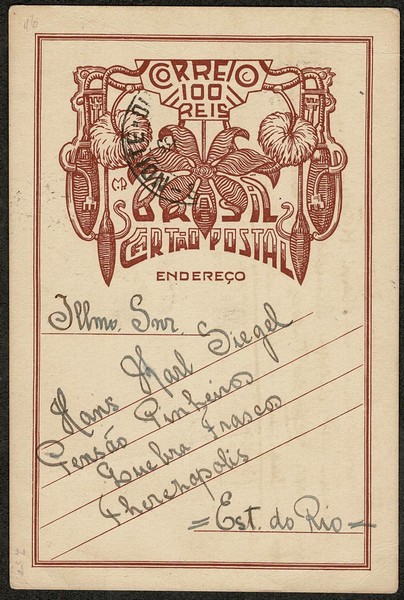 CORREIO
100
REIS
BRASIL
CARTÃO POSTAL
ENDEREÇO
Illmo. Snr.
Hans Karl Siegel
Pensão Pinheiros
Quebra Frasco
Therezopolis
= Est. do Rio =